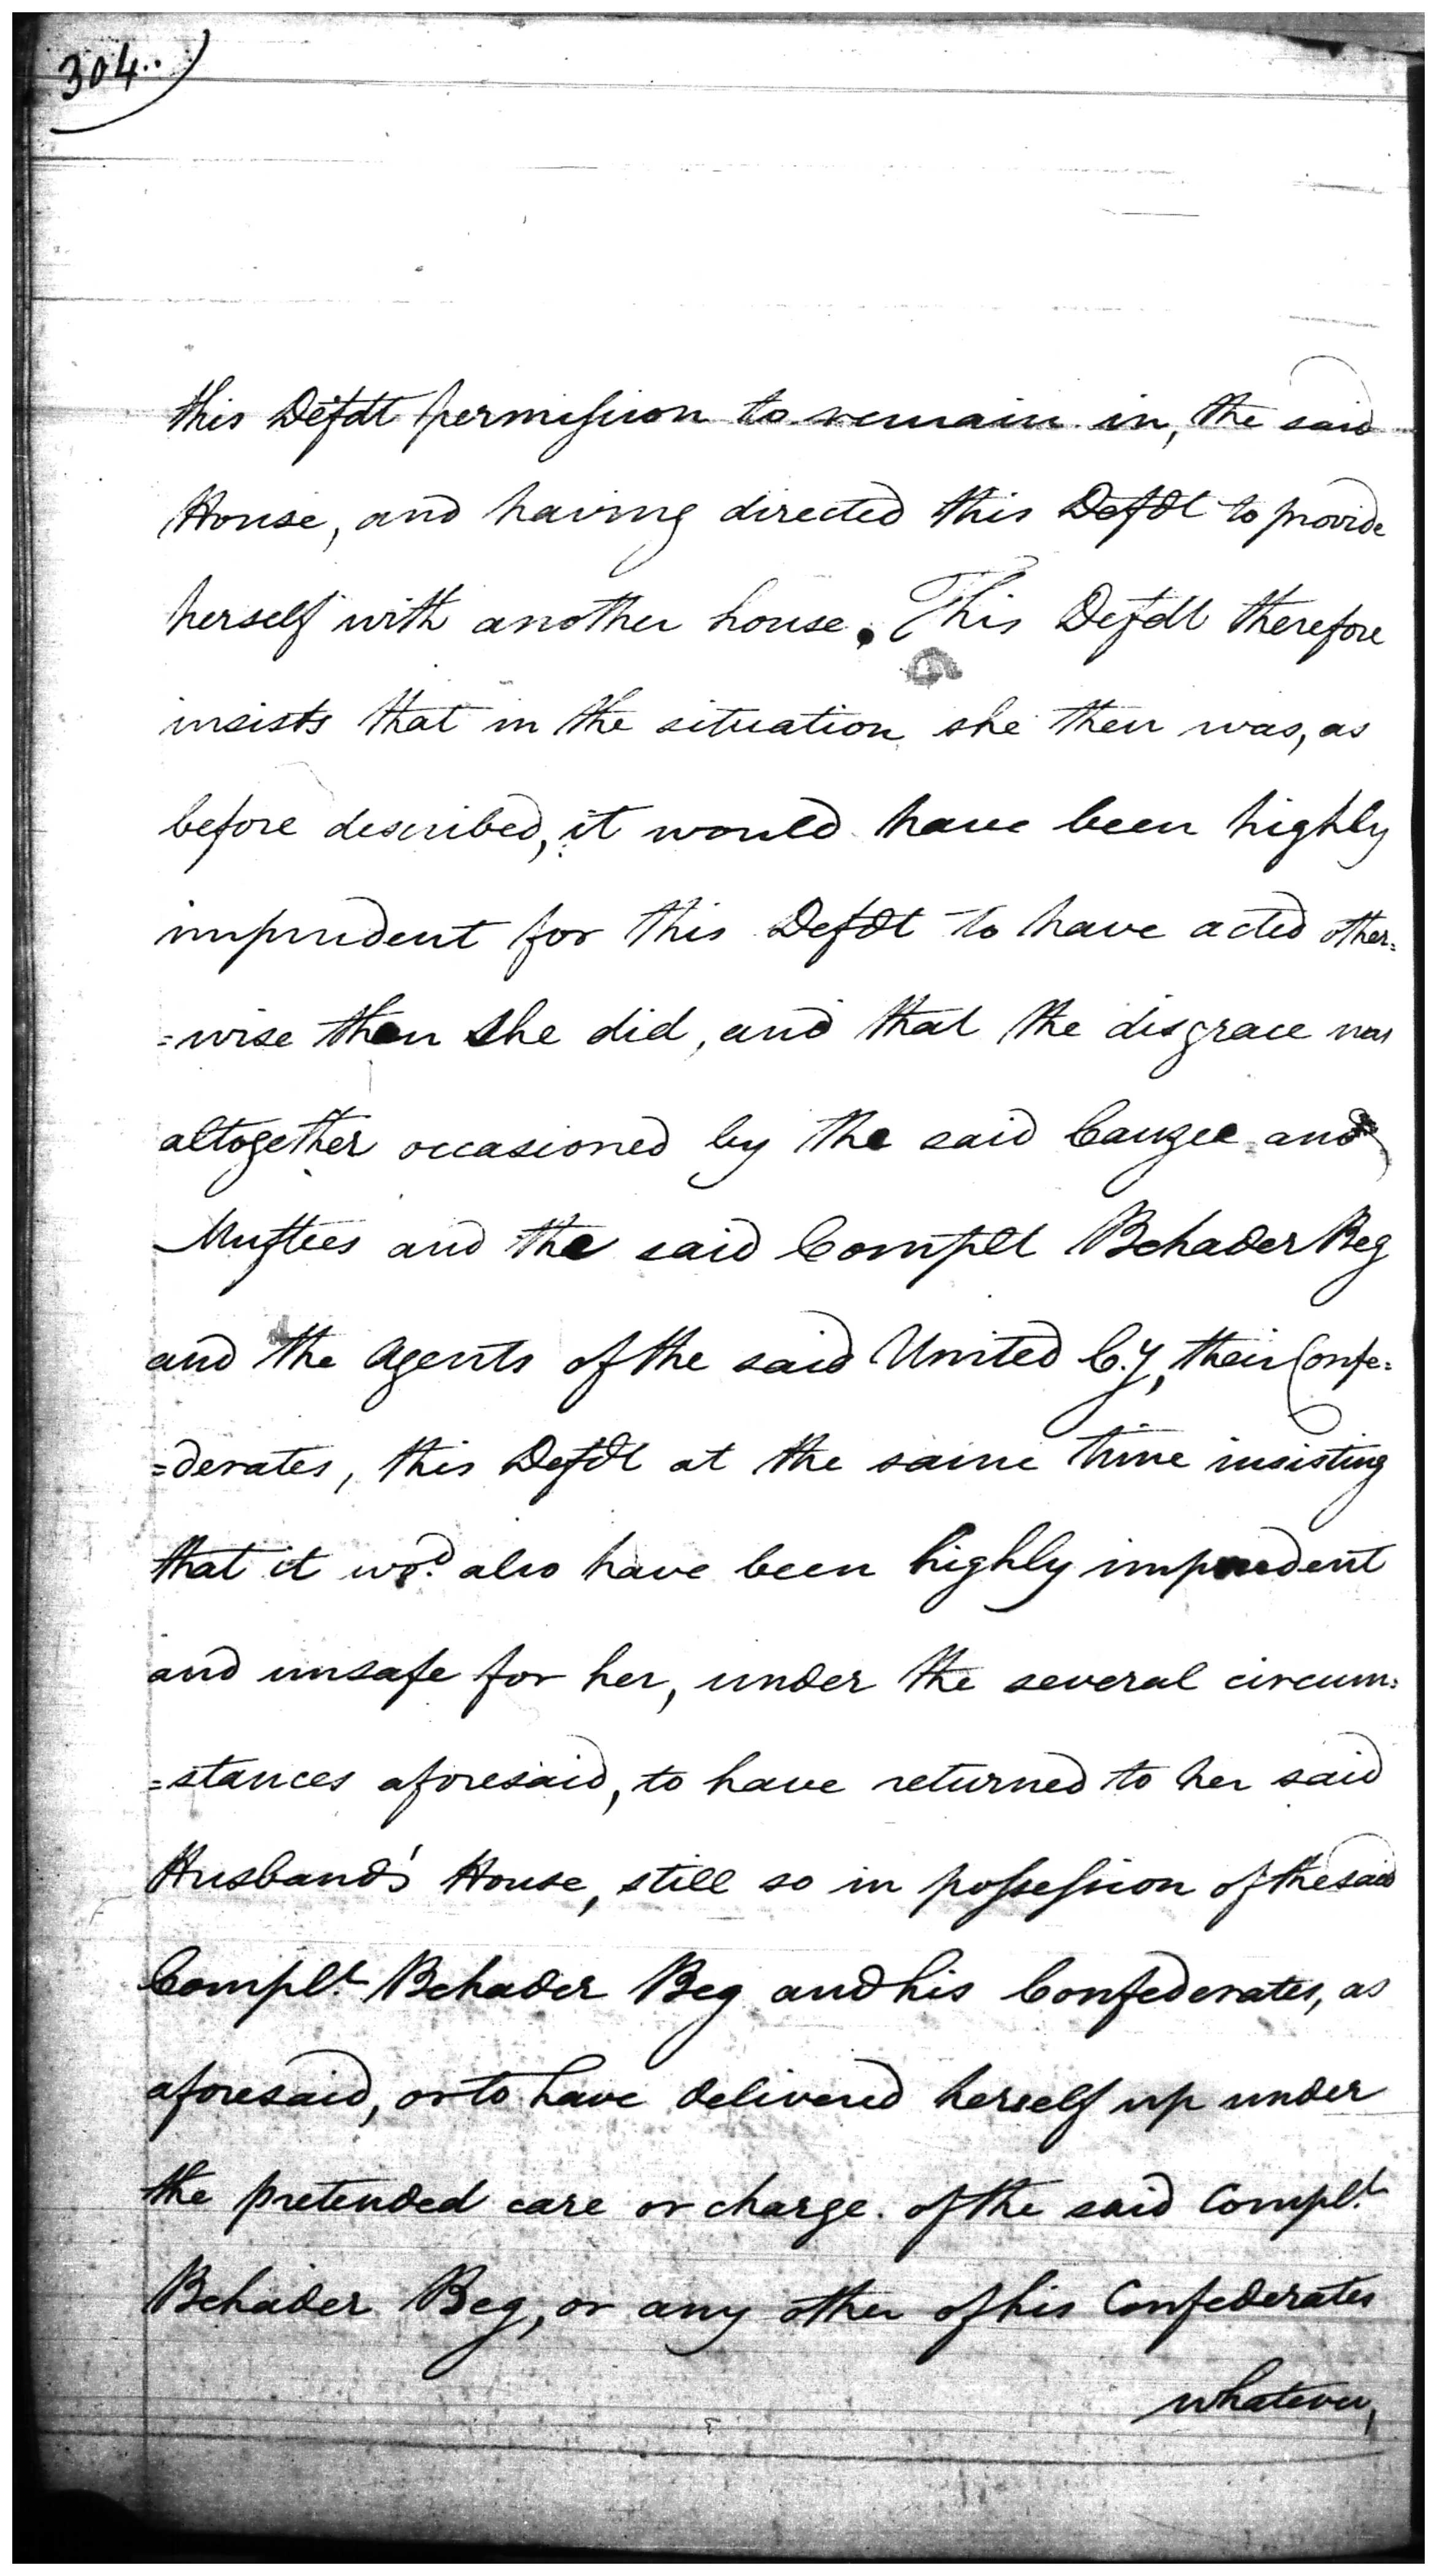 304..
this Defdt permission to remain in, the said
House, and having directed this Defdt to provide
herself with another house. This Defdt therefore
insists that in the situation she then was, as
before described, it would have been highly
imprudent for this Defdt to have acted other=
=wise than she did, and that the disgrace was
altogether occasioned by the said Cauzee and
Muftees and the said Complt Behader Beg
and the Agents of the said United C.y, their Confe=
=derates, this Defdt at the same time insisting
that it wod. also have been highly imprudent
and unsafe for her, under the several circum=
=stances aforesaid, to have returned to her said
Husband's House, still so in possession of the said
Complt. Behader Beg and his Confederates, as
aforesaid, or to have delivered herself up under
the pretended care or charge. of the said Complt.
Behader Beg, or any other of his Confederates
whatever,